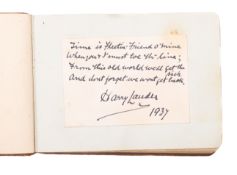 Time is Fleetin' Friend o' mine
When you & I must toe the line;
From this old world we'll get the sack
And dont forget we wont get back
Harry Lauder
1937